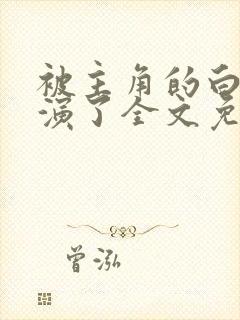 被主角的白
演了全文免
曾泓